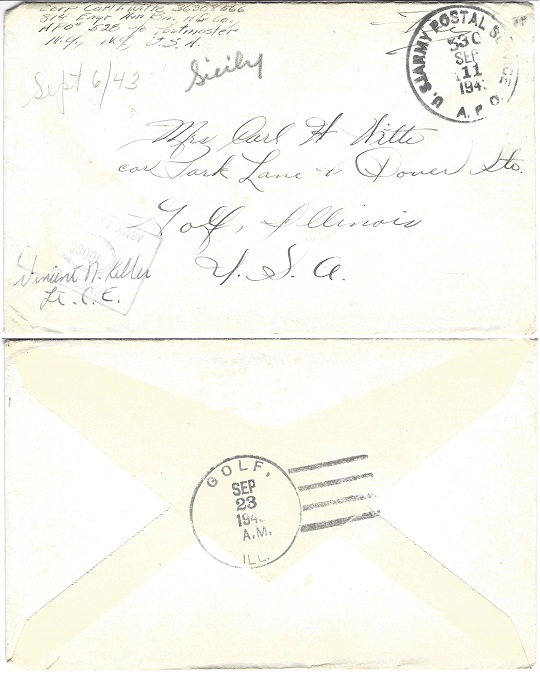 Corp Carl H Witte 36308666
814 Engr Avn Bn, HQ Co,
APO# 528 c/o Postmaster
N.Y., N.Y., U.S.A.
Free
U.S. ARMY POSTAL SERVICE
530
SEP
11
194
A.P.O.
Sept 6/43
Sicily
Mrs Carl H Witte
cor Park Lane & Dover Sts.
Golf, Illinois
U.S.A.
ARMY
Vincent N. Keller
Lt. C.E.
GOLF,
SEP
23
194
A.M.
ILL.